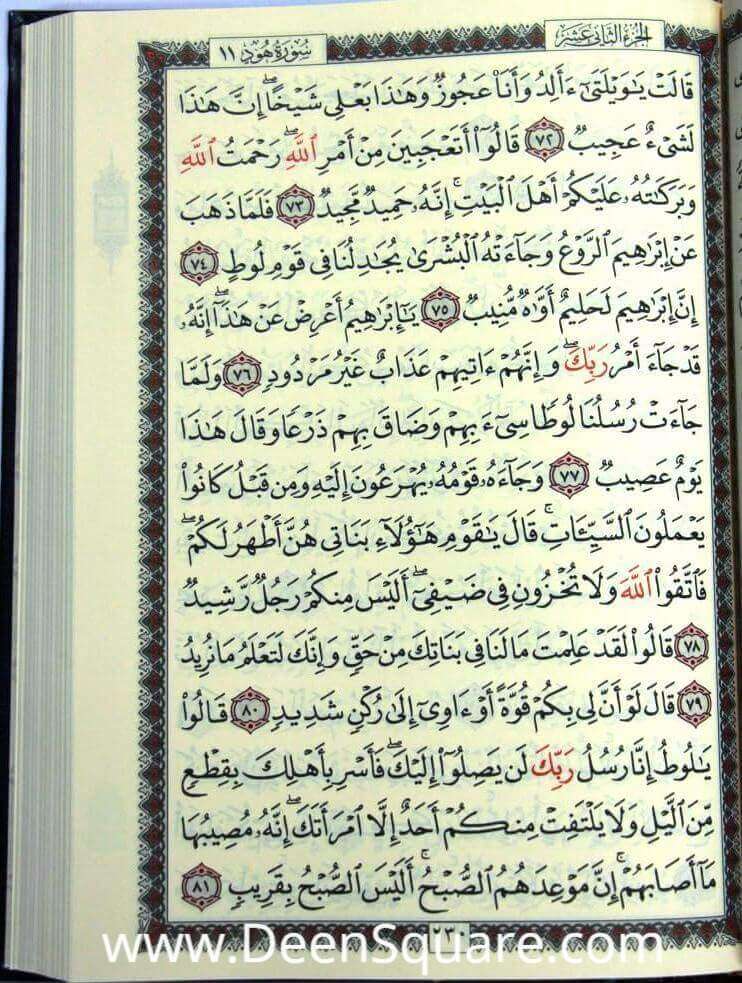 الجزء الثاني عشر
سورة هود ١١
قَالَتْ يَٰوَيْلَتَىٰٓ ءَأَلِدُ وَأَنَا۠ عَجُوزٌ وَهَٰذَا بَعْلِى شَيْخًا ۖ إِنَّ هَٰذَا
لَشَىْءٌ عَجِيبٌ ٧٢ قَالُوٓا۟ أَتَعْجَبِينَ مِنْ أَمْرِ ٱللَّهِ ۖ رَحْمَتُ ٱللَّهِ
وَبَرَكَٰتُهُۥ عَلَيْكُمْ أَهْلَ ٱلْبَيْتِ ۚ إِنَّهُۥ حَمِيدٌ مَّجِيدٌ ٧٣ فَلَمَّا ذَهَبَ
عَنْ إِبْرَٰهِيمَ ٱلرَّوْعُ وَجَآءَتْهُ ٱلْبُشْرَىٰ يُجَٰدِلُنَا فِى قَوْمِ لُوطٍ ٧٤
إِنَّ إِبْرَٰهِيمَ لَحَلِيمٌ أَوَّٰهٌ مُّنِيبٌ ٧٥ يَٰٓإِبْرَٰهِيمُ أَعْرِضْ عَنْ هَٰذَآ ۖ إِنَّهُۥ
قَدْ جَآءَ أَمْرُ رَبِّكَ ۖ وَإِنَّهُمْ ءَاتِيهِمْ عَذَابٌ غَيْرُ مَرْدُودٍ ٧٦ وَلَمَّا
جَآءَتْ رُسُلُنَا لُوطًا سِىٓءَ بِهِمْ وَضَاقَ بِهِمْ ذَرْعًا وَقَالَ هَٰذَا
يَوْمٌ عَصِيبٌ ٧٧ وَجَآءَهُۥ قَوْمُهُۥ يُهْرَعُونَ إِلَيْهِ وَمِن قَبْلُ كَانُوا۟
يَعْمَلُونَ ٱلسَّيِّـَٔاتِ ۚ قَالَ يَٰقَوْمِ هَٰٓؤُلَآءِ بَنَاتِى هُنَّ أَطْهَرُ لَكُمْ ۖ
فَٱتَّقُوا۟ ٱللَّهَ وَلَا تُخْزُونِ فِى ضَيْفِىٓ ۖ أَلَيْسَ مِنكُمْ رَجُلٌ رَّشِيدٌ
٧٨ قَالُوا۟ لَقَدْ عَلِمْتَ مَا لَنَا فِى بَنَاتِكَ مِنْ حَقٍّ وَإِنَّكَ لَتَعْلَمُ مَا نُرِيدُ
٧٩ قَالَ لَوْ أَنَّ لِى بِكُمْ قُوَّةً أَوْ ءَاوِىٓ إِلَىٰ رُكْنٍ شَدِيدٍ ٨٠ قَالُوا۟
يَٰلُوطُ إِنَّا رُسُلُ رَبِّكَ لَن يَصِلُوٓا۟ إِلَيْكَ ۖ فَأَسْرِ بِأَهْلِكَ بِقِطْعٍ
مِّنَ ٱلَّيْلِ وَلَا يَلْتَفِتْ مِنكُمْ أَحَدٌ إِلَّا ٱمْرَأَتَكَ ۖ إِنَّهُۥ مُصِيبُهَا
مَآ أَصَابَهُمْ ۚ إِنَّ مَوْعِدَهُمُ ٱلصُّبْحُ ۚ أَلَيْسَ ٱلصُّبْحُ بِقَرِيبٍ ٨١
٢٣٠
www.DeenSquare.com